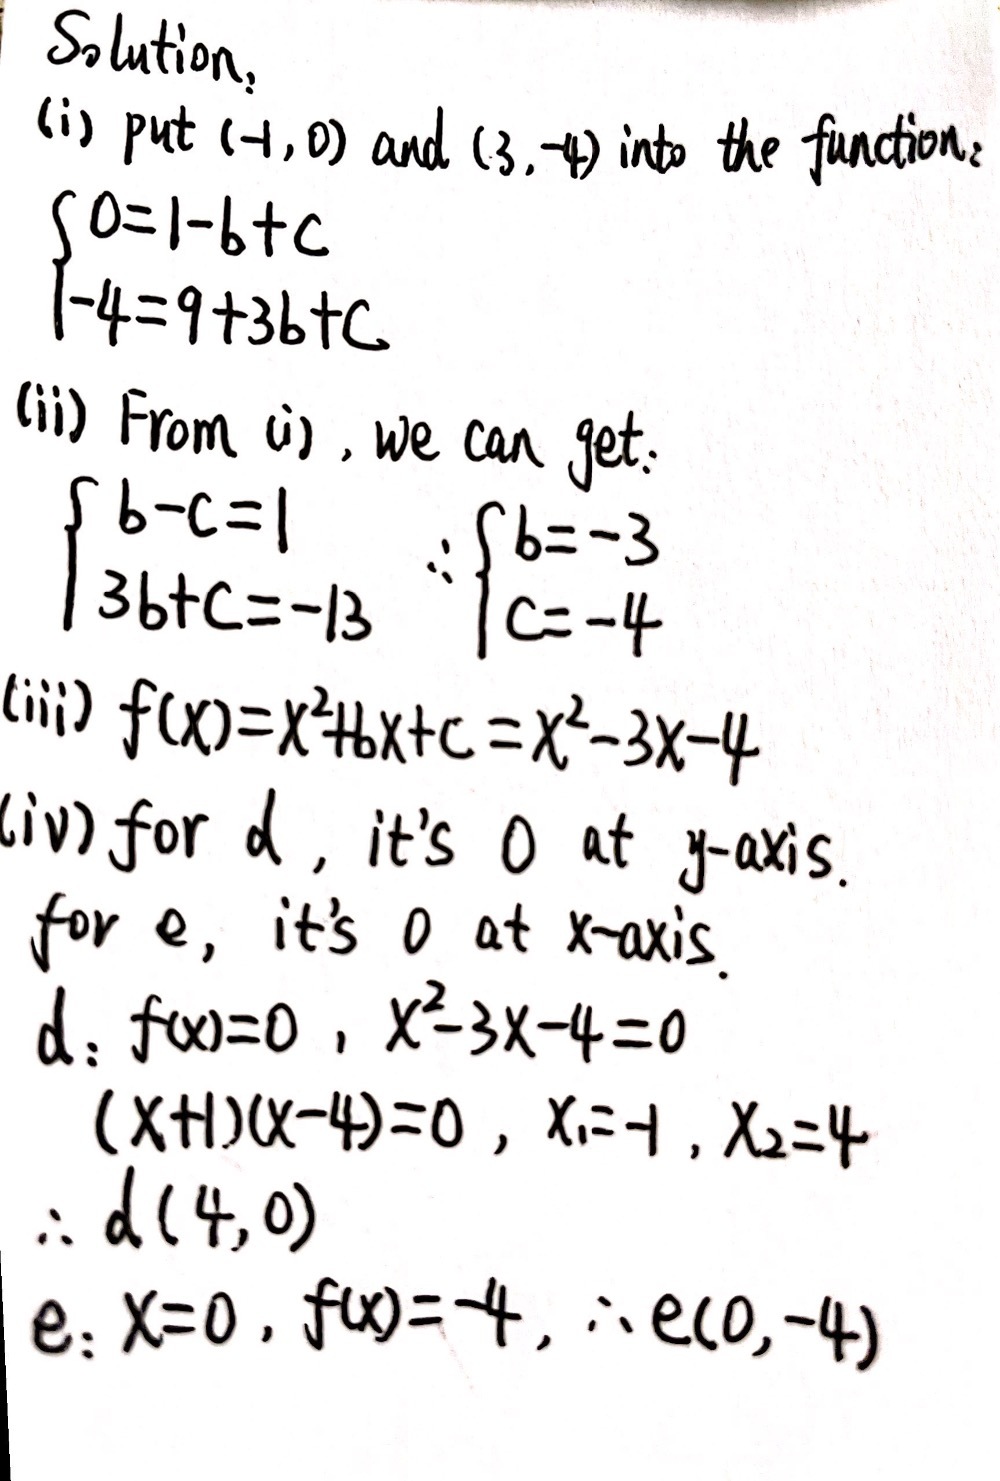 Solution:
(i) put (-1,0) and (3,-4) into the function:
{0=1-b+c
-4=9+3b+c
(ii) From (i), we can get:
{b-c=1 ∴{b=-3
3b+c=-13 c=-4
(iii) f(x)=x²+bx+c=x²-3x-4
(iv) for d, it's 0 at y-axis.
for e, it's 0 at x-axis.
d: f(x)=0, x²-3x-4=0
(x+1)(x-4)=0, x₁=-1, x₂=4
∴ d(4,0)
e: x=0, f(x)=-4, ∴ e(0,-4)